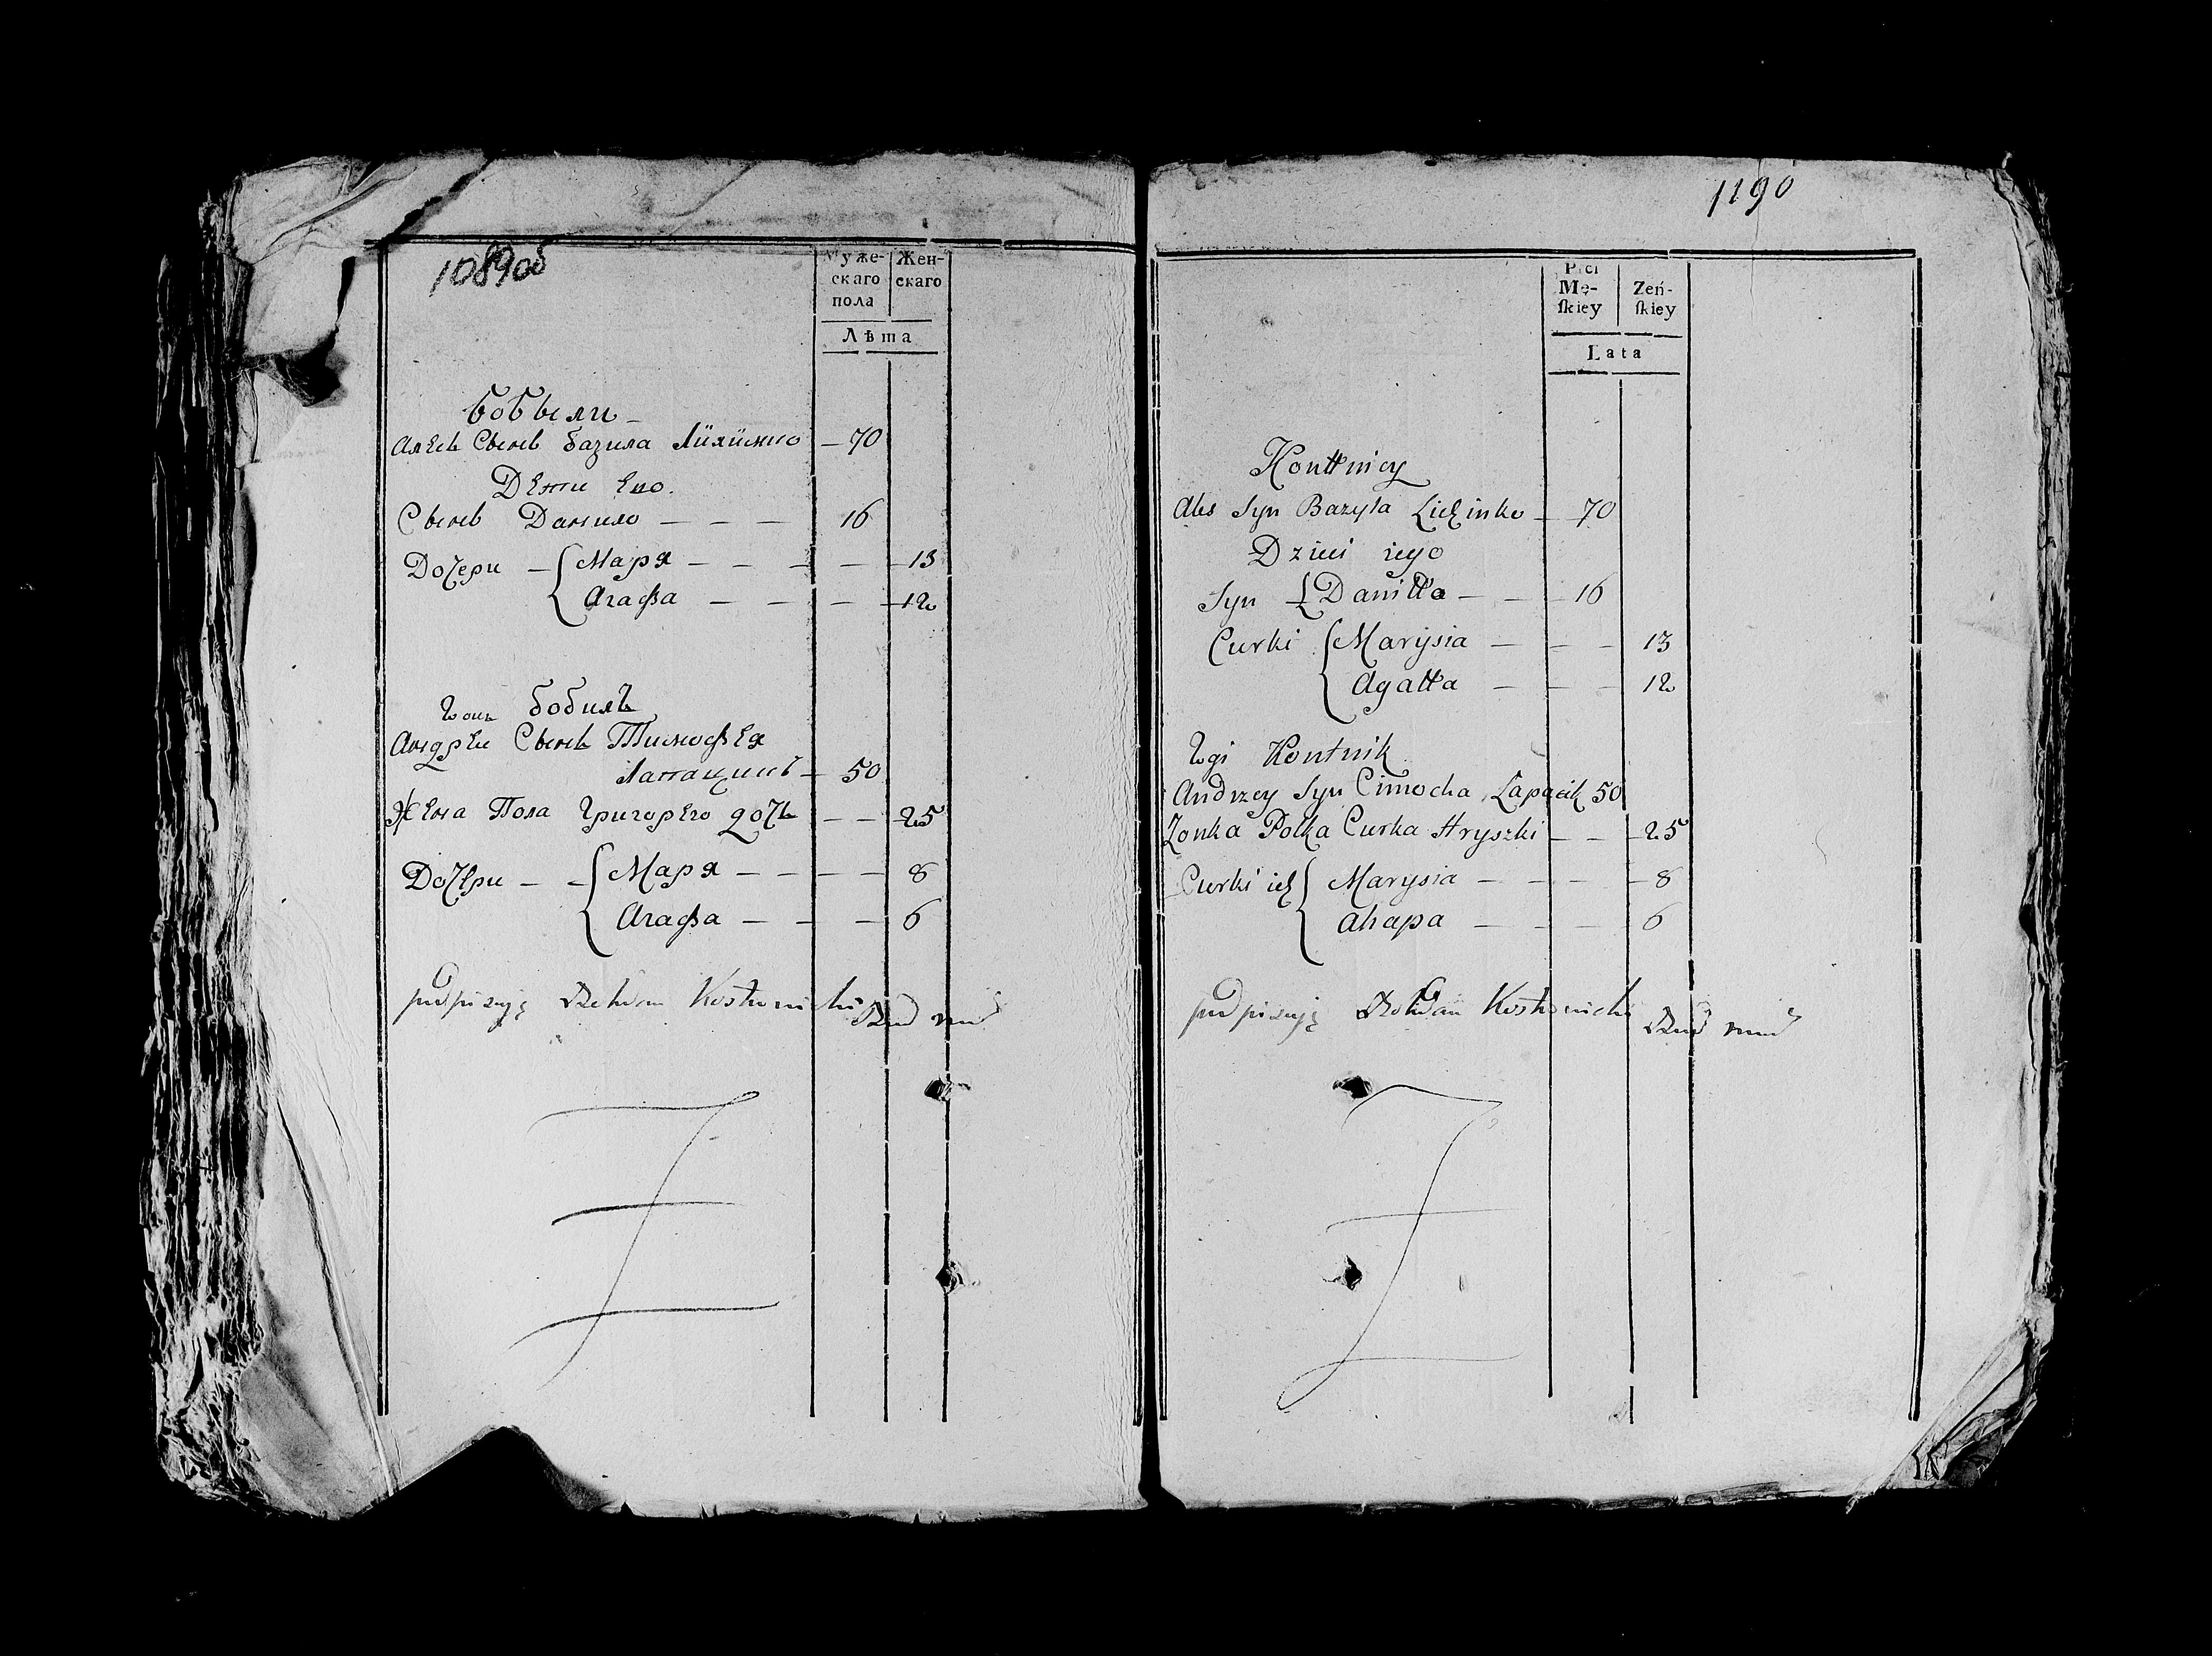 1089об
Муже-
скаго
пола
Жен-
скаго
Лѣта
бобыли
Алесь Сынъ базила
Дети Его
Сынъ Данило 16
70
Дочери Маря 13
Агафа 12
бобилъ
Андреи Сынъ Тимофея
50
Жена Пола Григорего дочь 25
Дочери Маря 8
Агафа 6
podpisuję
1190
Płci
Mę-
ſkiey
Zeń-
ſkiey
Lata
Konttnicy
Ales Syn Bazyla 70
Dzieci iego
Syn Daniłła 16
Curki Marysia 13
Agatta 12
2gi Kontnik
Andrzey Syn Cimocha Łapacik 50
Zonka Polka Curka Hryszki 25
Curki ich Marysia 8
Ahapa 6
podpisuję Bohdan